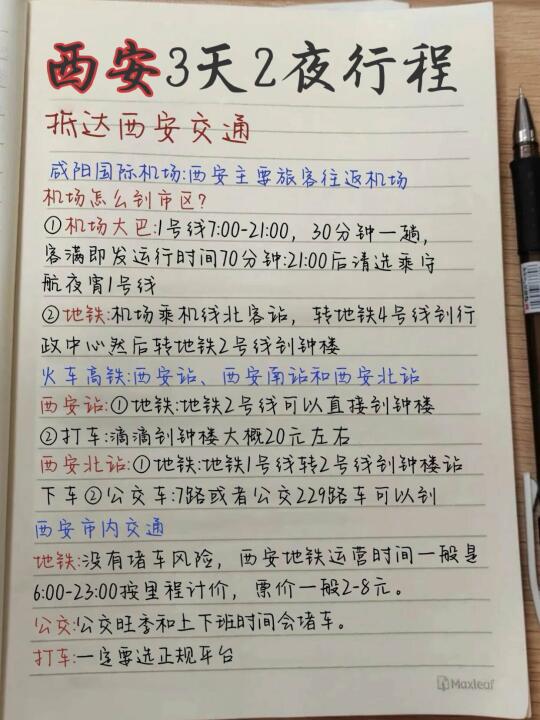 西安3天2夜行程
抵达西安交通
咸阳国际机场:西安主要旅客往返机场
机场怎么到市区?
①机场大巴:1号线7:00-21:00, 30分钟一趟,
客满即发运行时间70分钟:21:00后清选乘守
航夜宵1号线
②地铁:机场乘机线北客站, 转地铁4号线到行
政中心然后转地铁2号线到钟楼
火车高铁:西安站、西安南站和西安北站
西安站:①地铁:地铁2号线可以直接到钟楼
②打车:滴滴到钟楼大概20元左右
西安北站:①地铁:地铁1号线转2号线到钟楼站
下车②公交车:7路或者公交229路车可以到
西安市内交通
地铁:没有堵车风险, 西安地铁运营时间一般是
6:00-23:00按里程计价, 票价一般2-8元。
公交:公交旺季和上下班时间会堵车。
打车:一定要选正规平台
Maxleaf